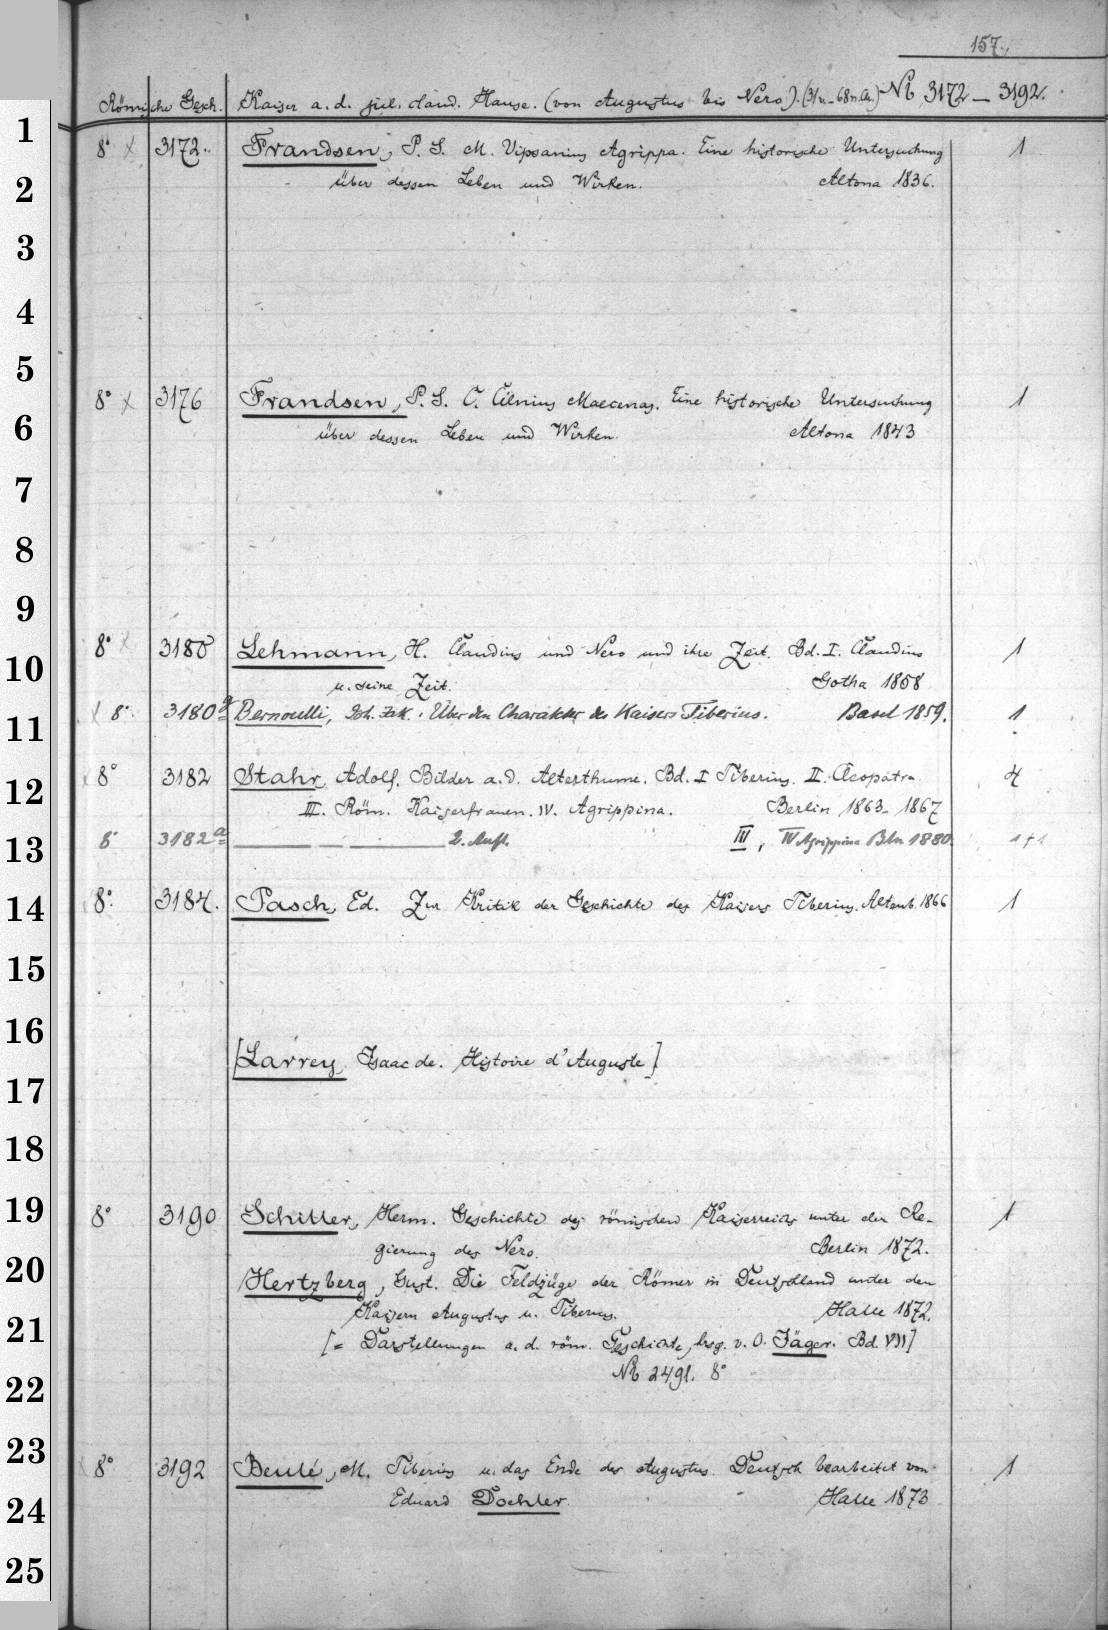 157.
Römische Gesch. Kaiser a. d. jul. claud. Hause. (von Augustus bis Nero). (31 v. - 68 n. Ch.) № 3172 — 3192.
1
8° x 3172. Frandsen, P. S. M. Vipsanius Agrippa. Eine historische Untersuchung 1
2
über dessen Leben und Wirken. Altona 1836.
3
4
5
8° x 3176 Frandsen, P. S. C. Cilnius Maecenas. Eine historische Untersuchung 1
6
über dessen Leben und Wirken. Altona 1843
7
8
9
8° x 3180 Lehmann, H. Claudius und Nero und ihre Zeit. Bd. I. Claudius 1
10
u. seine Zeit. Gotha 1858
x 8° 3180a Bernoulli, Joh. Jak.: Über den Charakter des Kaisers Tiberius. Basel 1859. 1
11
8° 3182 Stahr, Adolf. Bilder a. d. Alterthume. Bd. I Tiberius. II. Cleopatra 4
12
III. Röm. Kaiserfrauen. IV. Agrippina. Berlin 1863 - 1867
8° 3182a — — — 2. Aufl. III, IV Agrippina Bln 1880. 1+1
13
8° 3184. Pasch, Ed. Zur Kritik der Geschichte des Kaisers Tiberius. Altenb. 1866 1
14
15
16
[Larrey, Isaac de. Histoire d'Auguste]
17
18
19
8° 3190 Schiller, Herm. Geschichte des römischen Kaiserreichs unter der Re- 1
gierung des Nero. Berlin 1872.
20
Hertzberg, Gust. Die Feldzüge der Römer in Deutschland unter den
Kaisern Augustus u. Tiberius. Halle 1872.
21
[= Darstellungen a. d. röm. Geschichte, hrsg. v. O. Jäger. Bd. VII]
№ 2491. 8°
22
23
8° 3192 Beulé, M. Tiberius u. das Ende des Augustus. Deutsch bearbeitet von 1
24
Eduard Doehler. Halle 1873
25